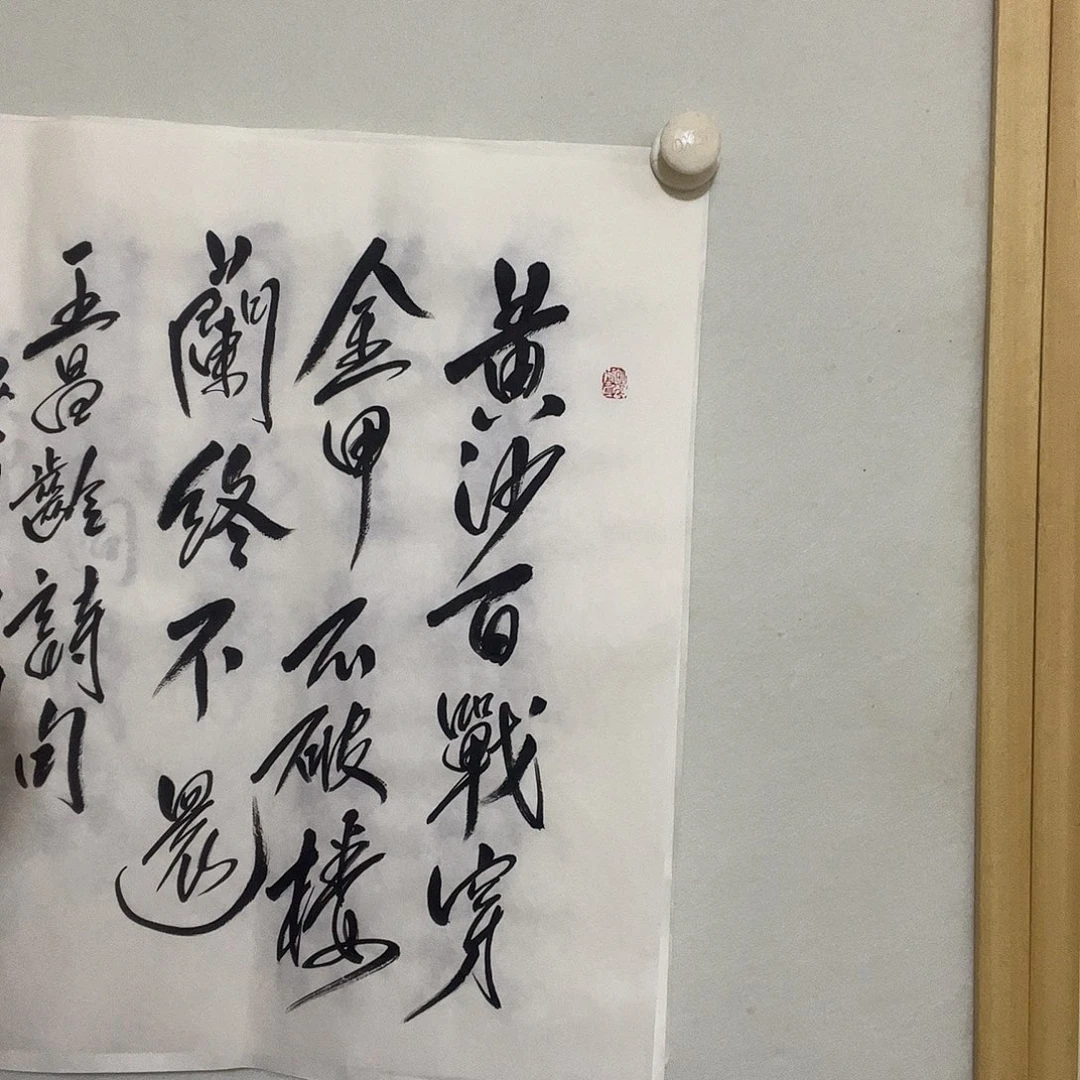 黄沙百戰穿
金甲不破楼
蘭終不還
王昌齡詩句